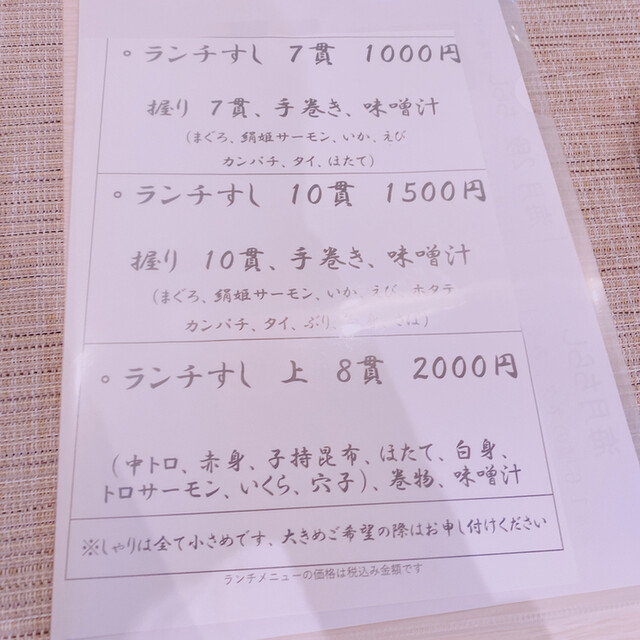 ○ ランチすし 7貫 1000円
握り 7貫、手巻き、味噌汁
(まぐろ、絹姫サーモン、いか、えび
カンパチ、タイ、ほたて)
○ ランチすし 10貫 1500円
握り 10貫、手巻き、味噌汁
(まぐろ、絹姫サーモン、いか、えび、ホタテ
カンパチ、タイ、ぶり、
○ ランチすし 上 8貫 2000円
(中トロ、赤身、子持昆布、ほたて、白身、
トロサーモン、いくら、穴子)、巻物、味噌汁
※しゃりは全て小さめです、大きめご希望の際はお申し付けください
ランチメニューの価格は税込み金額です